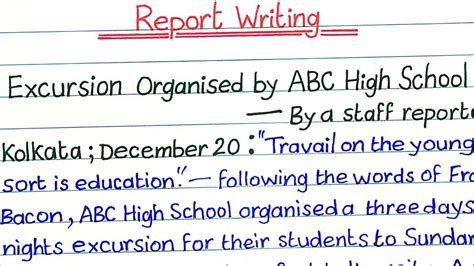 Report Writing
Excursion Organised by ABC High School
— By a staff report
Kolkata ; December 20 : "Travail on the young
sort is education." — following the words of Fra
Bacon, ABC High School organised a three days
nights excursion for their students to Sundar